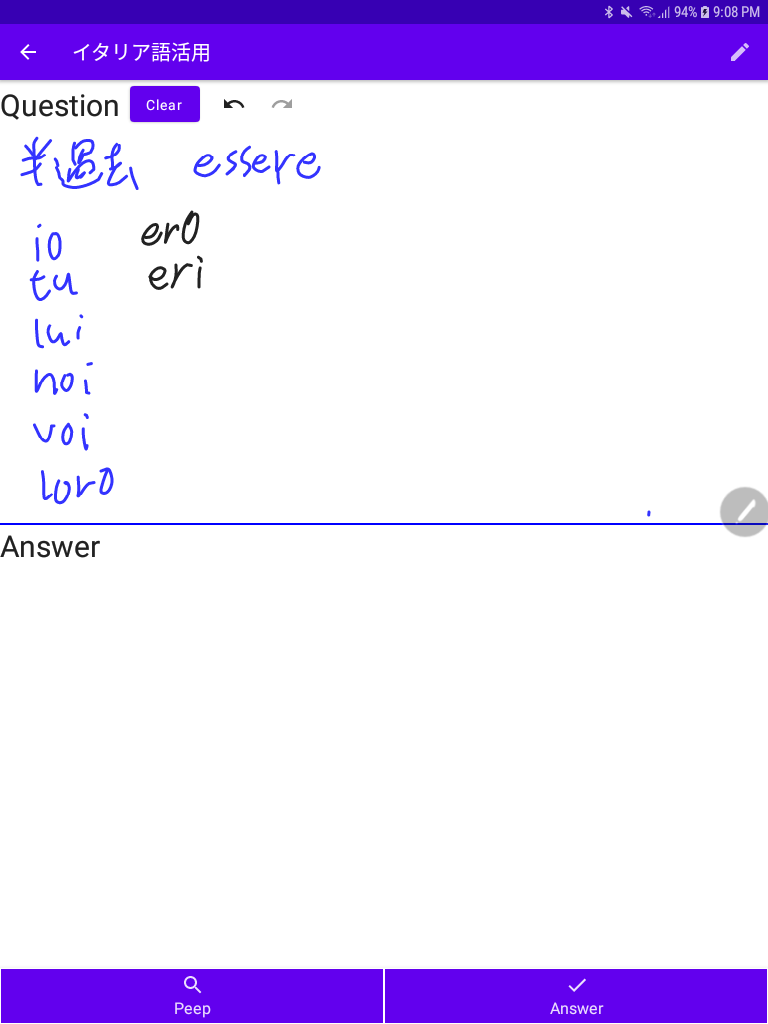 94% 9:08 PM
イタリア語活用
Question Clear
半過去 essere
io ero
tu eri
lui
noi
voi
loro
Answer
Peep Answer